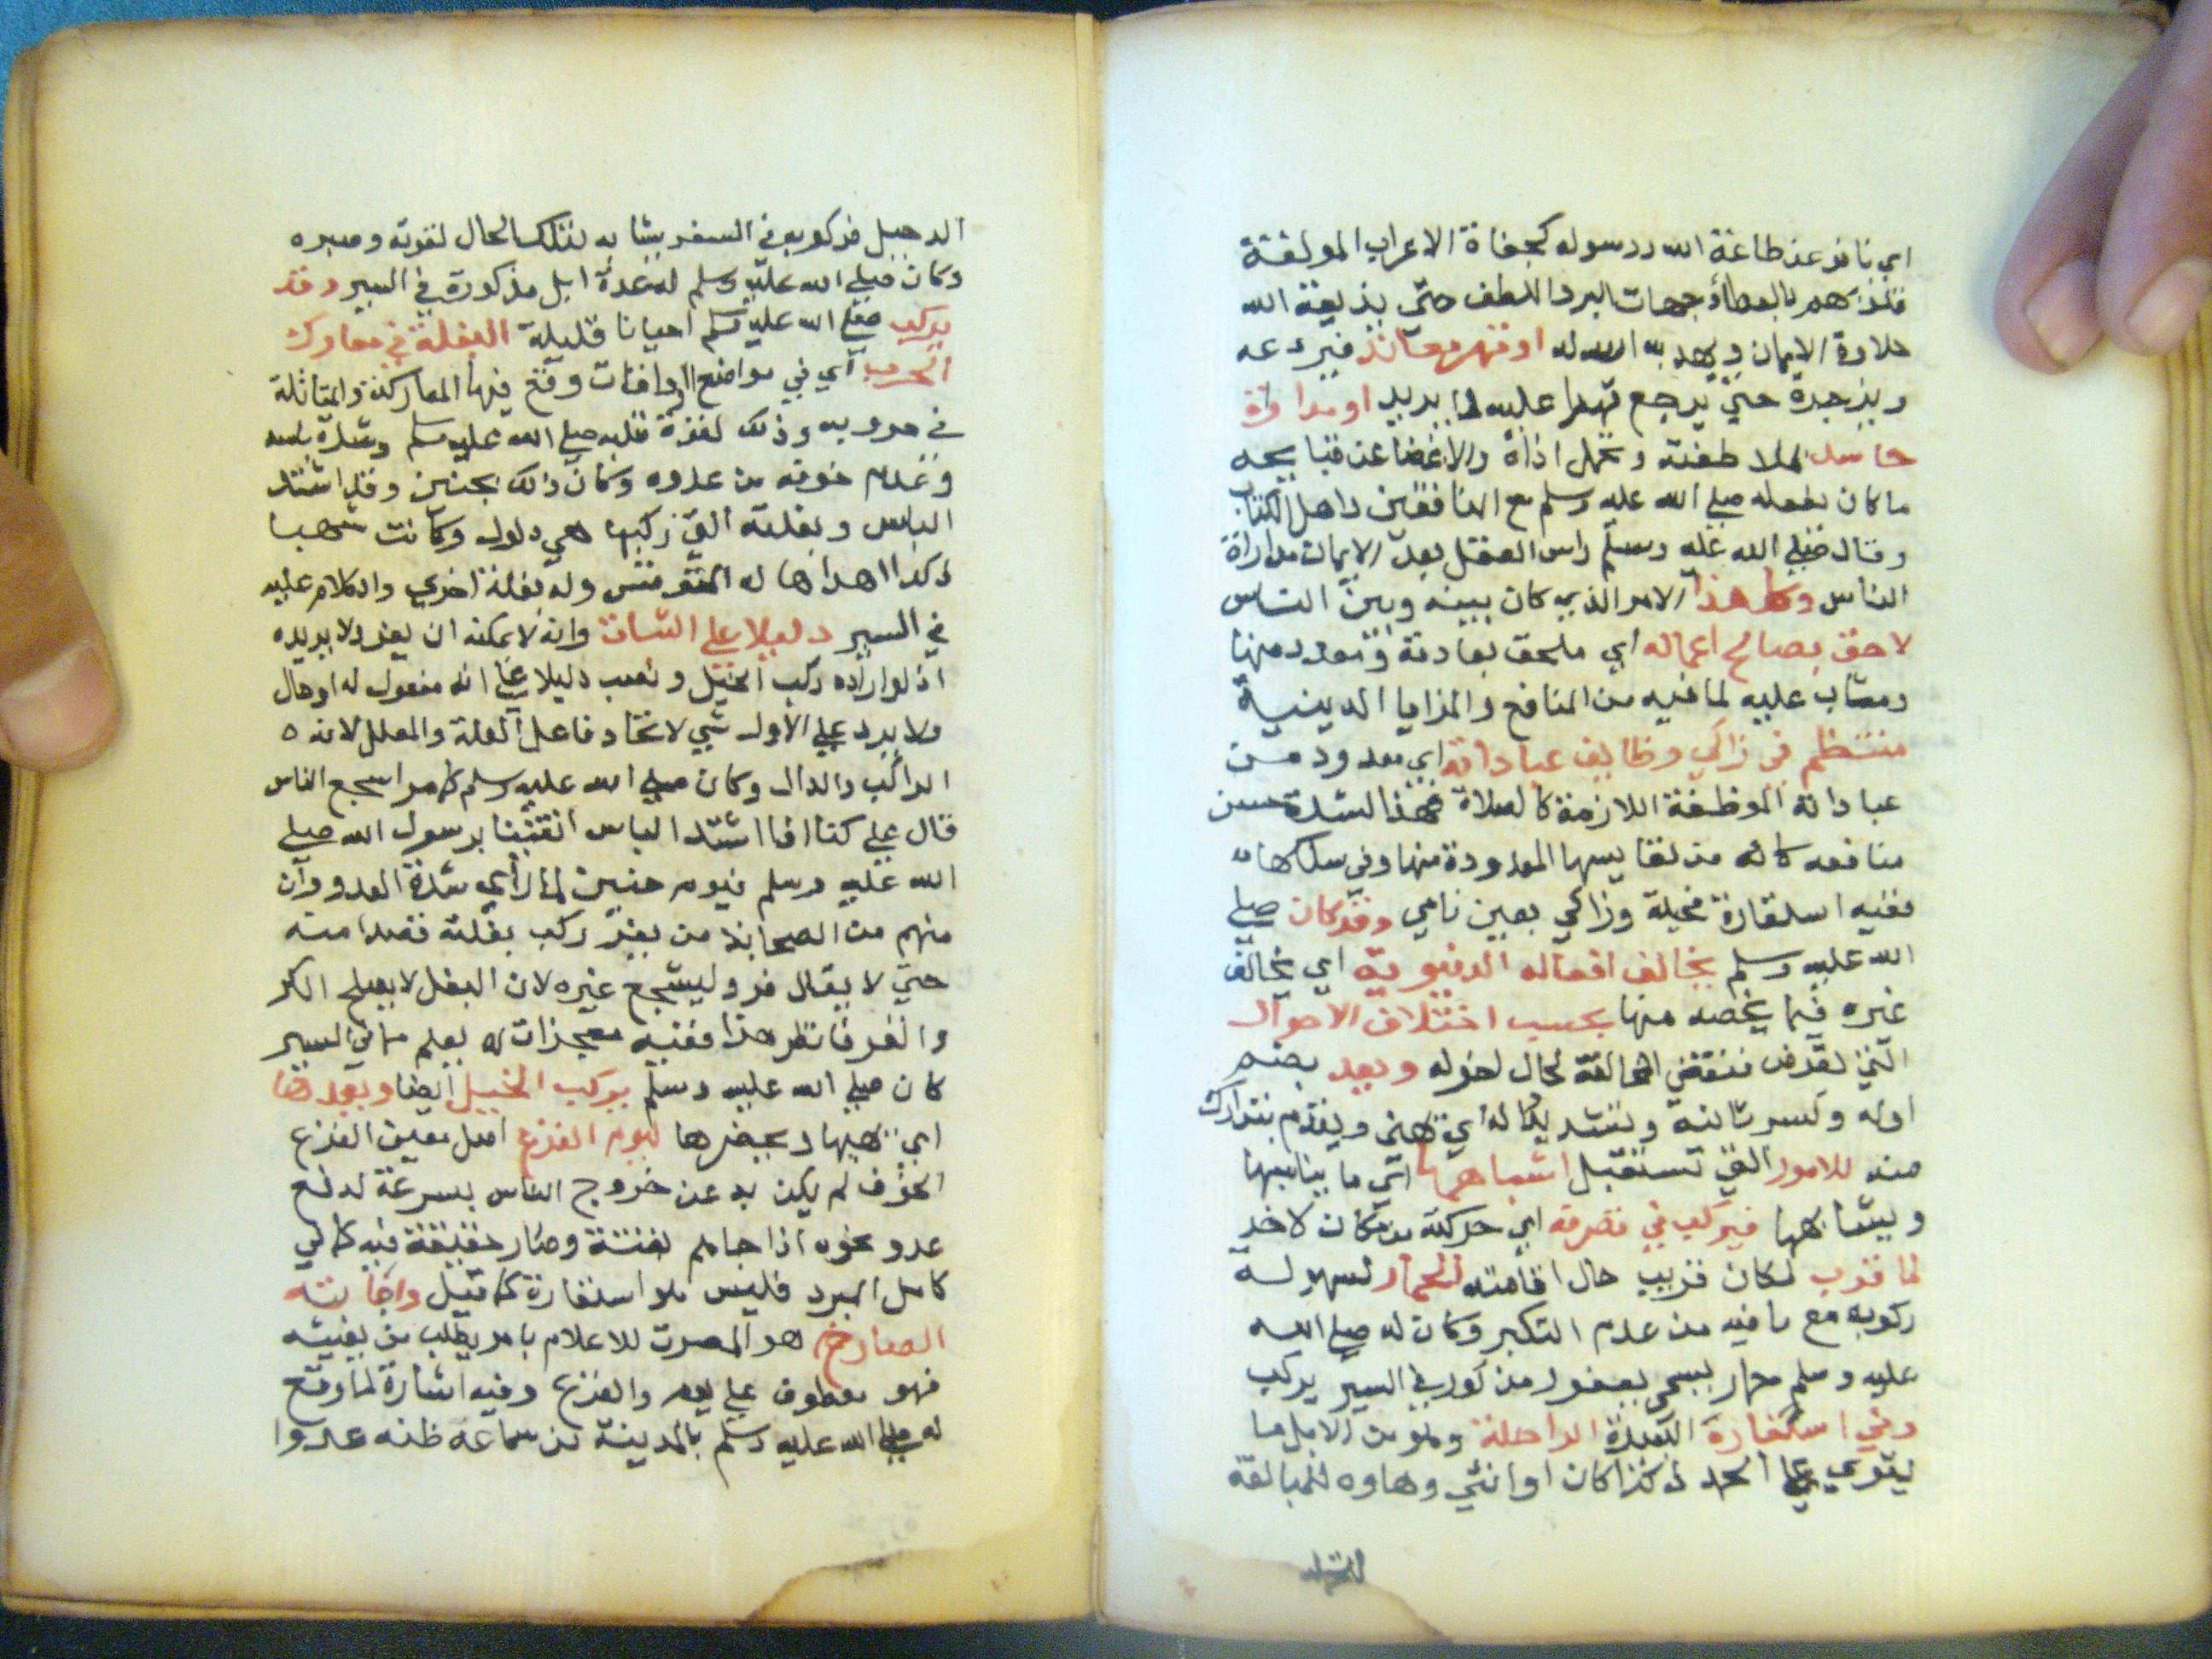 اي نافر عن طاعة الله ورسوله كجفاة الاعراب المولفة
هم بالعطا وجهات البر واللطف حتى يذيقه الله
حلاوة الايمان ويهديه الله له او قهر معاند فيردعه
ويزجره حتى يرجع قهرا عليه لما يريد او مداراة
حاسد لملاطفته وتحمل اذاه والاغضا عن قبايحه
ما كان يفعله صلى الله عليه وسلم مع المنافقين واهل الكتاب
وقال صلى الله عليه وسلم راس العقل بعد الايمان مداراة
الناس وكل هذا الامر الذي كان بينه وبين الناس
لاحق بصالح اعماله اي ملحق بعادته ومعدود منها
ومثاب عليه لما فيه من المنافع والمزايا الدينية
منتظم في زاكي وظايف عباداته اي معدود من
عباداته الموظفة اللازمة كالصلاة فهذا لشدة حسن
منافعه كانه من نفايسها المعدودة منها وفي سلكها
ففيه استعارة مخيلة وزاكي بمعنى نامي وقد كان صلى
الله عليه وسلم يخالف افعاله الدنيوية اي يخالف
غيره فيما يخصه منها بحسب اختلاف الاحوال
التي تعرض فتقتضي المخالفة كحال لحوله ويعد بضم
اوله وكسر ثانيه وتشديد داله اي يهيئ ويقدم بتدارك
منه للامور التي تستقبل اشباهها اي ما يناسبها
ويشاكلها فيركب في تصرفه اي حركته من مكان لاخر
لما قرب لمكان قريب حال اقامته الحمار لسهولة
ركوبه مع ما فيه من عدم التكبر وكان له صلى الله
عليه وسلم حمار يسمى يعفور مذكور في السير يركب
وفي اسفاره البعيدة الراحلة وهو من الابل ما
يقوى على الحمل ذكرا كان او انثى وهاوه للمبالغة
الرحيل فركوبه في السفر يشابه لتلك الحال لقوته وصبره
وكان صلى الله عليه وسلم له عدة ابل مذكورة في السير وقد
يركب صلى الله عليه وسلم احيانا قليلة البغلة في معارك
الحرب اي في مواضع او اوقات وقع فيها المعاركة والمقاتلة
في حروبه وذلك لقوة قلبه صلى الله عليه وسلم وشدة باسه
وعدم خوفه من عدوه وكان ذلك بحنين وقد اشتد
الباس وبغلته التي ركبها هي دلدل وكانت شهبا
ذكرا اهداها له المقوقس وله بغلة اخرى والكلام عليه
في السير دليلا على الثبات وانه لا يمكنه ان يفر ولا يريده
اذ لو اراده ركب الخيل ونصب دليلا على انه مفعول له او حال
ولا يرد على الاول شي لاتحاد فاعل العلة والمعلل لانه ه
الراكب والدال وكان صلى الله عليه وسلم كما مر اشجع الناس
قال علي كنا اذا اشتد الباس اتقينا برسول الله صلى
الله عليه وسلم فيوم حنين لما راي شدة العدو وان
منهم من الصحابة من يفر ركب بغلته قصدا منه
حتى لا يقال فر وليشجع غيره لان البغل لا يصلح للكر
والفر فانظر هذا ففيه معجزات له يعلم مما في السير
كان صلى الله عليه وسلم يركب الخيل ايضا ويعدها
اي يهيها ويحضرها ليوم الفزع اصل معنى الفزع
الخوف ثم يكنى به عن خروج الناس بسرعة لدفع
عدو نحوه اذا جاهم بغتة وصار حقيقة فيه كما في
كامل المبرد فليس هو استعارة كما قيل واجابة
الصارخ هو المصوت للاعلام بامر يطلب من يغيثه
فهو معطوف على يوم والفزع وفيه اشارة لما وقع
له صلى الله عليه وسلم بالمدينة من سماعه ظنه عدوا